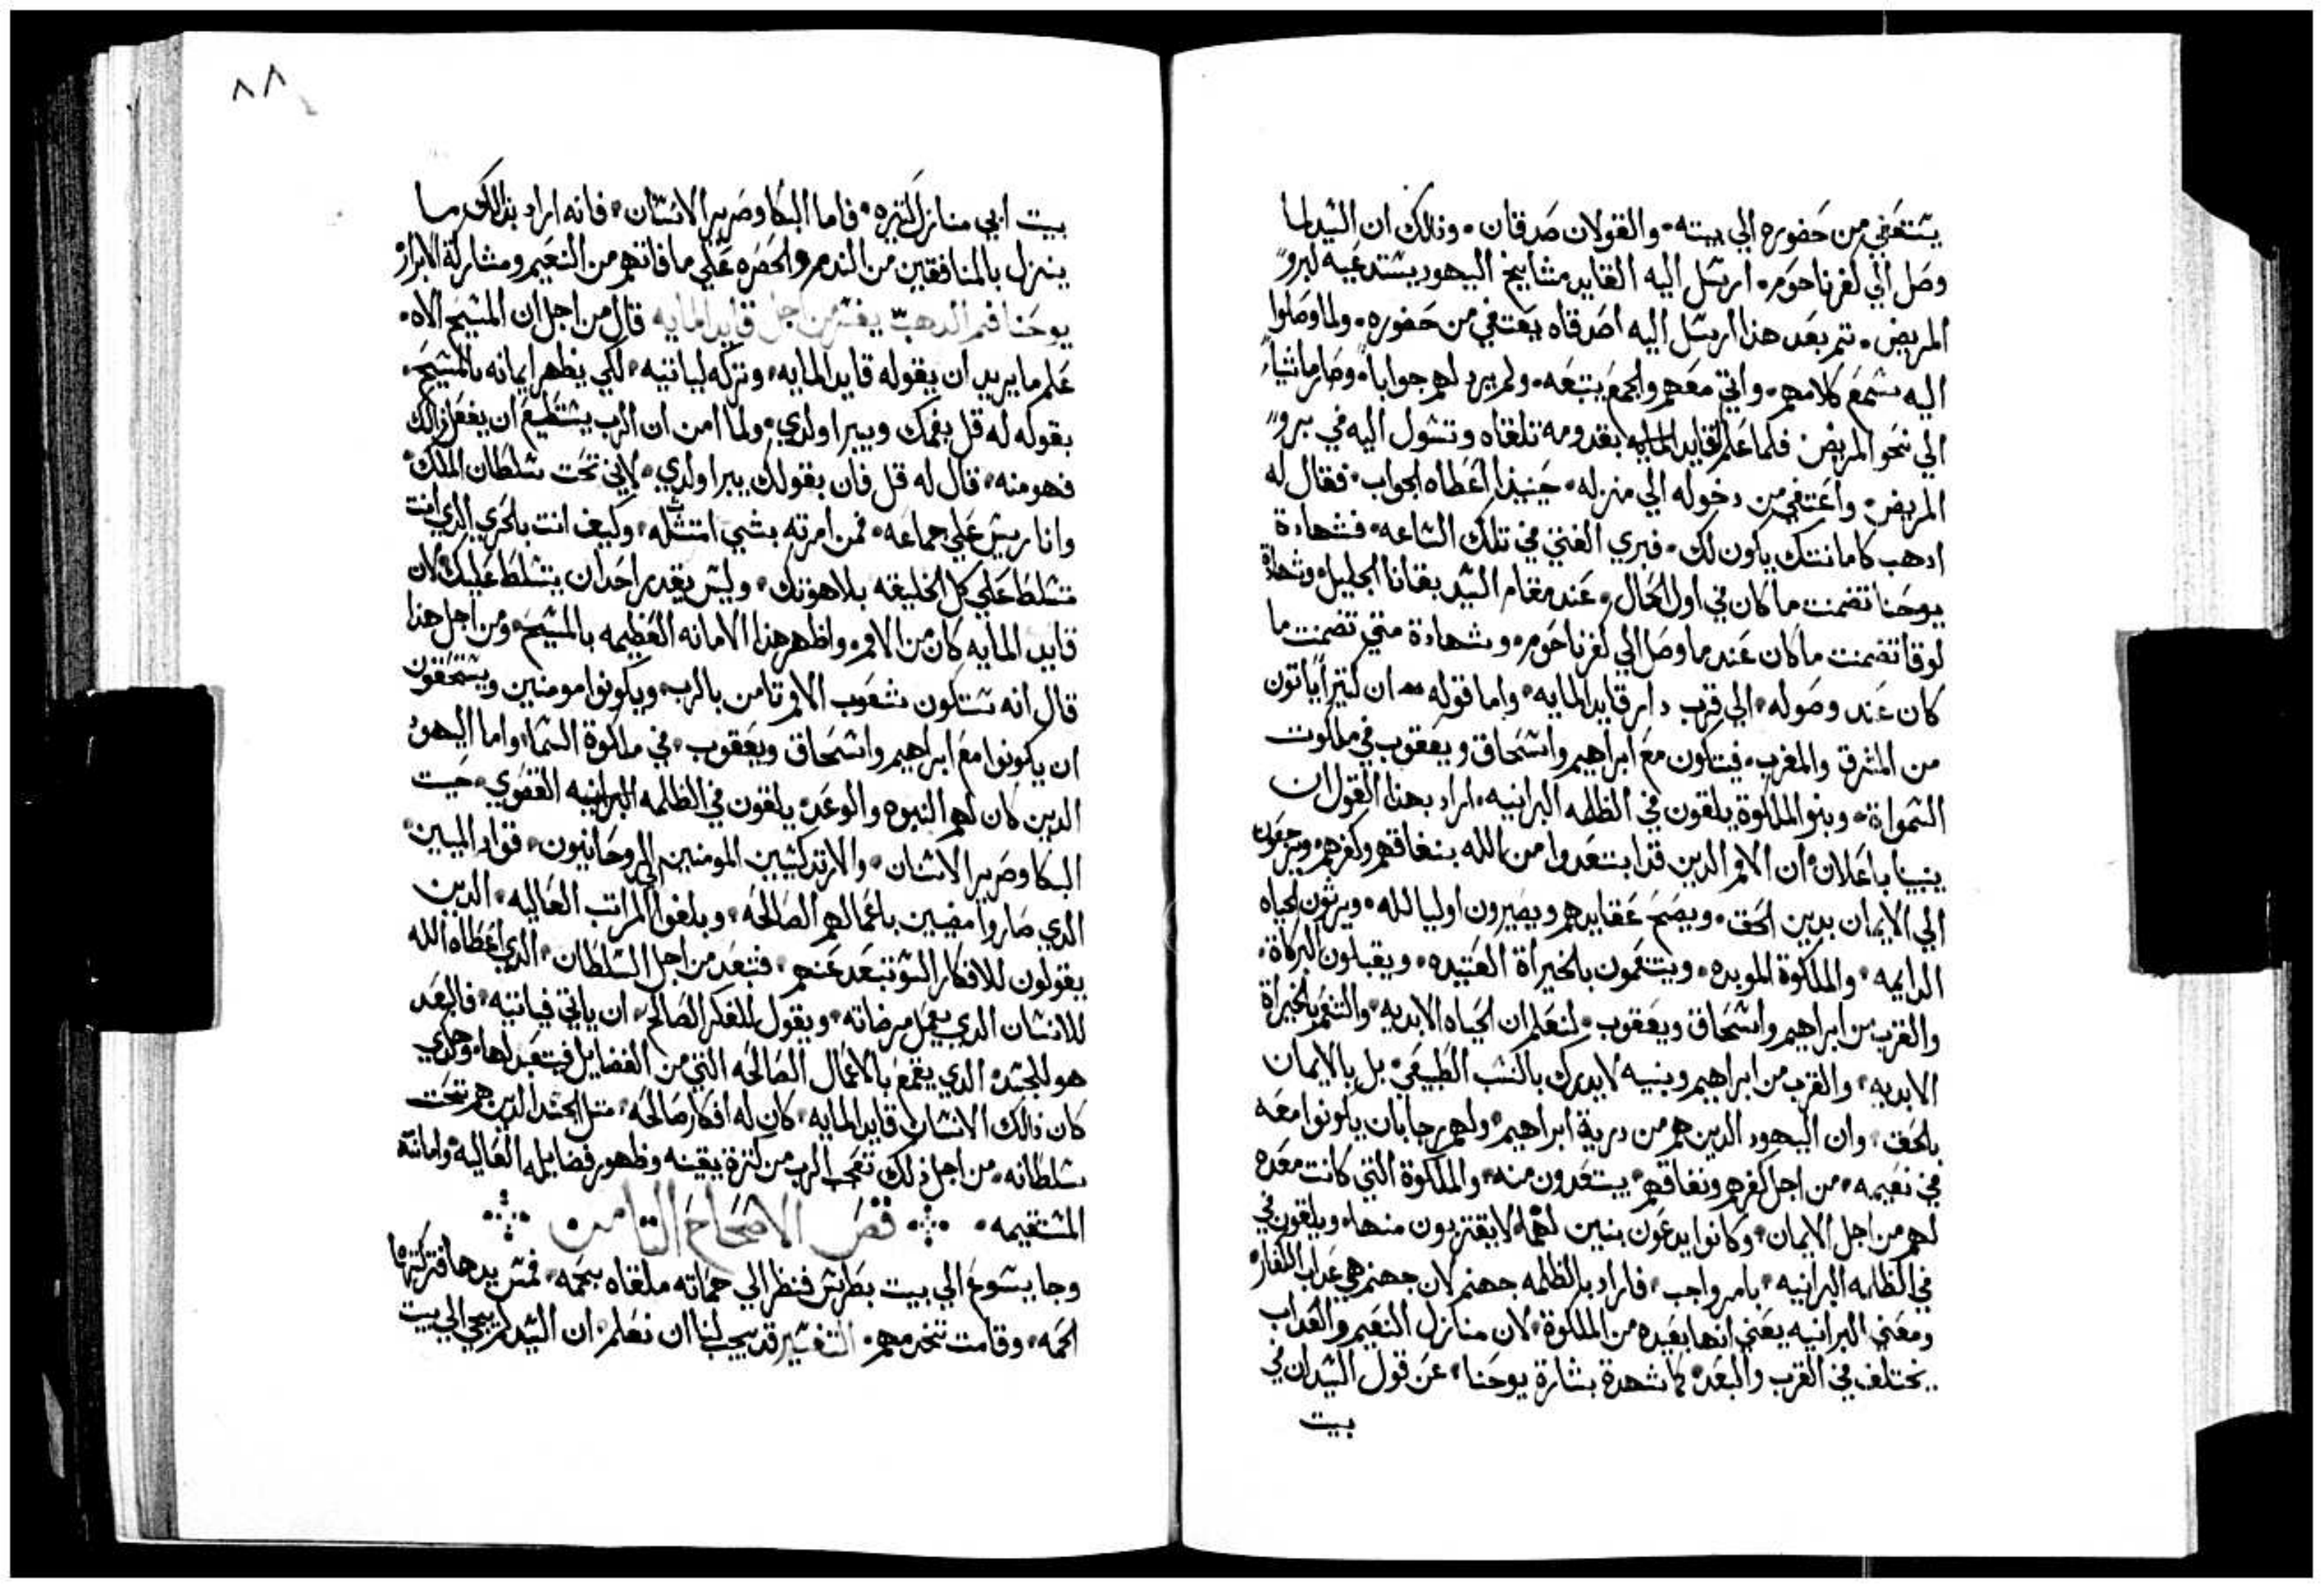 يستعفي من حضوره الي بيته والقولان صدقان وذلك ان السيد لما
وصل الي كفرناحوم ارسل اليه القايد مشايخ اليهود يستدعيه لبرو
المريض تم بعد هذا ارسل اليه اصدقاه يعتفي من حضوره ولما وصلوا
اليه سمع كلامهم واتي معهم والجمع يتبعه ولم يرد لهم جوابا وصار ماشيا
الي نحو المريض فلما علم القايد بقدومه تلقاه وتسول اليه في برو
المريض واعتفي من دخوله الي منزله حينيذ اعطاه الجواب فقال له
ادهب كامانتك ياكون لك فبري الفتي في تلك الساعه فشهادة
يوحنا تضمنت ما كان في اول الحال عند مقام السيد بقانا الجليل وشهادة
لوقا تضمنت ما كان عند ما وصل الي كفرناحوم وشهادة متي تضمنت ما
كان عند وصوله الي قرب دار قايد المايه واما قوله ان كتيرا ياتون
من المشرق والمغرب فيتاكون مع ابراهيم واسحاق ويعقوب في ملكوت
السمواة وبنو الملكوة يلقون في الظلمه البرانيه اراد بهذا القول ان
يبينا باعلان ان الامم الدين قد ابتعدوا من الله بنفاقهم وكفرهم ويرجعون
الي الايمان بدين الحق ويصح عقايدهم ويصيرون اوليا لله ويرتون الحياه
الدايمه والملكوة الموبده ويتنعمون بالخيراة العتيده ويقبلون البركاة
والقرب من ابراهيم واسحاق ويعقوب لنعلم ان الحياه الابديه والتنعم بالخيراة
الابديه والقرب من ابراهيم وبنيه لا يدرك بالنسب الطبيعي بل بالايمان
بالحق وان اليهود الدين هم من درية ابراهيم ولهم رجا بان يكونوا معه
في نعيمه من اجل كفرهم ونفاقهم يبتعدون منه والملكوة التي كانت معده
لهم من اجل الايمان وكانوا يدعون بنين لهما لا يقتربون منها ويلقون في
في الظلمه البرانيه بامر واجب فاراد بالظلمه جهنم لان جهنم هي عداب الكفار
ومعني البرانيه يعني انها بعيده من الملكوة لان منازل النعيم والعداب
يختلف في القرب والبعد كما شهدة بشارة يوحنا عن قول السيد ان في
بيت
٨٨
بيت ابي منازل كتيره فاما البكا وصرير الاسنان فانه اراد بدالك ما
ينزل بالمنافقين من الندم والحصره علي ما فاتهم من النعيم ومشاركة الابرار
يوحنا فم الدهب يفسر من اجل قايد المايه قال من اجل ان المسيح الاه
علم ما يريد ان يقوله قايد المايه وتركه لياتيه لكي يظهر ايمانه بالمسيح
بقوله له قل بفمك ويبرا ولدي ولما امن ان الرب يستطيع ان يفعل ذالك
فهو منه قال له قل فان بقولك يبرا ولدي لاني تحت سلطان الملك
وانا ريس علي جماعه فمن امرته بشي امتثله وكيف انت بالحري الدي انت
تسلط علي كل الخليقه بلاهوتك وليس يقدر احد ان يتسلط عليك لان
قايد المايه كان من الامم واظهر هذا الامانه العظيمه بالمسيح ومن اجل هذا
قال انه ستكون شعوب الامم تامن بالرب ويكونوا مومنين ويستحقون
ان ياكونوا مع ابراهيم واسحاق ويعقوب في ملكوة السما واما اليهود
الدين كان لهم النبوه والوعد يلقون في الظلمه البرانيه القصوي حيت
البكا وصرير الاسنان والارتدكسيين المومنين الروحانيون قواد الميين
الدي صاروا مضيين باعمالهم الصالحه وبلغوا المراتب العاليه الدين
يقولون للافكار السو تبعد عنهم فتبعد من اجل السلطان الدي اعطاه الله
للانسان الدي يعمل مرضاته ويقول للفكر الصالح ان ياتي فياتيه فالعبد
هو للجسد الدي يقمع بالاعمال الصالحه التي من الفضايل فيتعبد لها وهكدي
كان ذالك الانسان قايد المايه كان له افكار صالحه متل الجند الدين هم تحت
سلطانه من اجل ذلك تعجب الرب من كترة يقينه وظهور فضايله العاليه وامانته
المستقيمه فص الاصحاح التامن
وجا يسوع الي بيت بطرس فنظر الي حماته ملقاه بحمه فمس يدها فتركتها
الحمه وقامت تخدمهم التفسير قد يجب لنا ان نعلم ان السيد لم يجي الي بيت